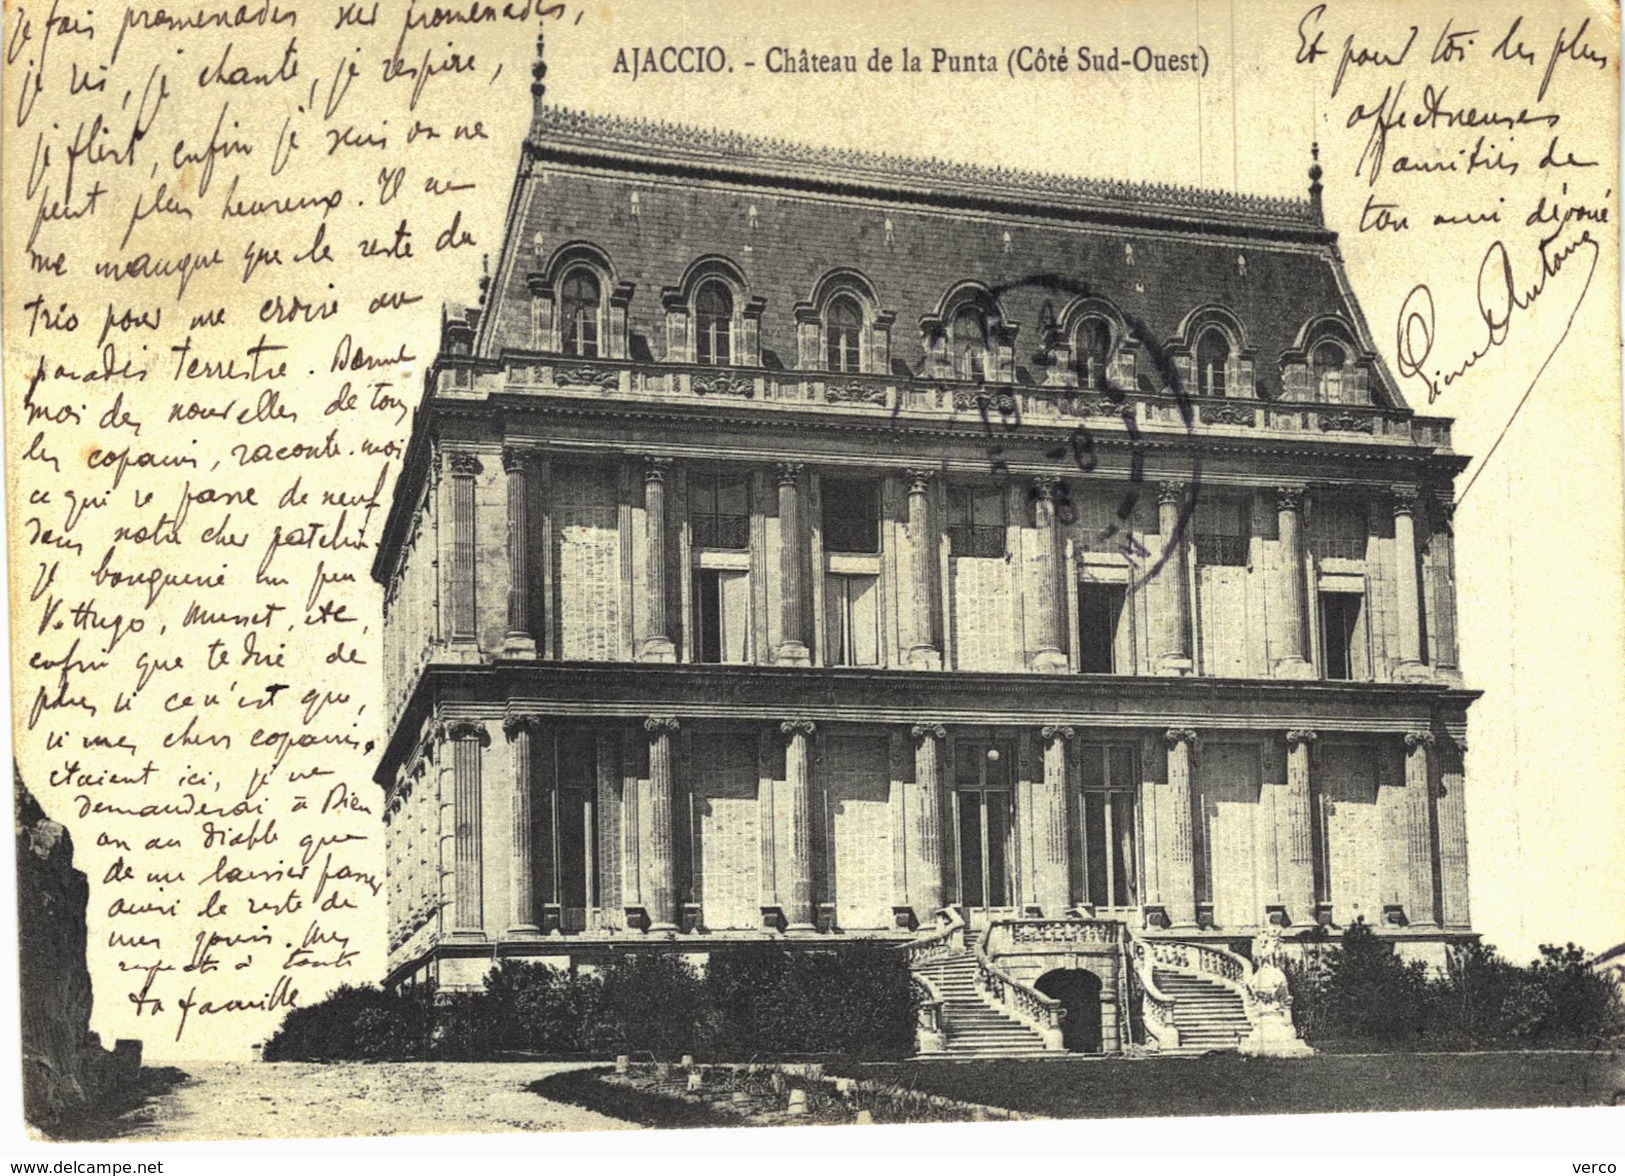 je fais promenades sur promenades,
je ris, je chante, je respire,
je flirt, enfin je suis on ne
peut plus heureux. Il ne
me manque que le reste du
trio pour me croire au
paradis terrestre. Donne
moi des nouvelles de tous
les copains, raconte-moi
ce qui se passe de neuf
dans notre cher patelin.
Je bouquine un peu
V. Hugo, Musset, etc,
enfin que te dire de
plus si ce n'est que,
si mes chers copains,
étaient ici, je ne
demanderai à Dieu
ou au diable que
de me laisser passer
ainsi le reste de
mes jours. Mes
respects à toute
ta famille
AJACCIO. - Château de la Punta (Côté Sud-Ouest)
Et pour toi les plus
affectueuses
amitiés de
ton ami dévoué
Pierre Antoine
www.delcampe.net
verco